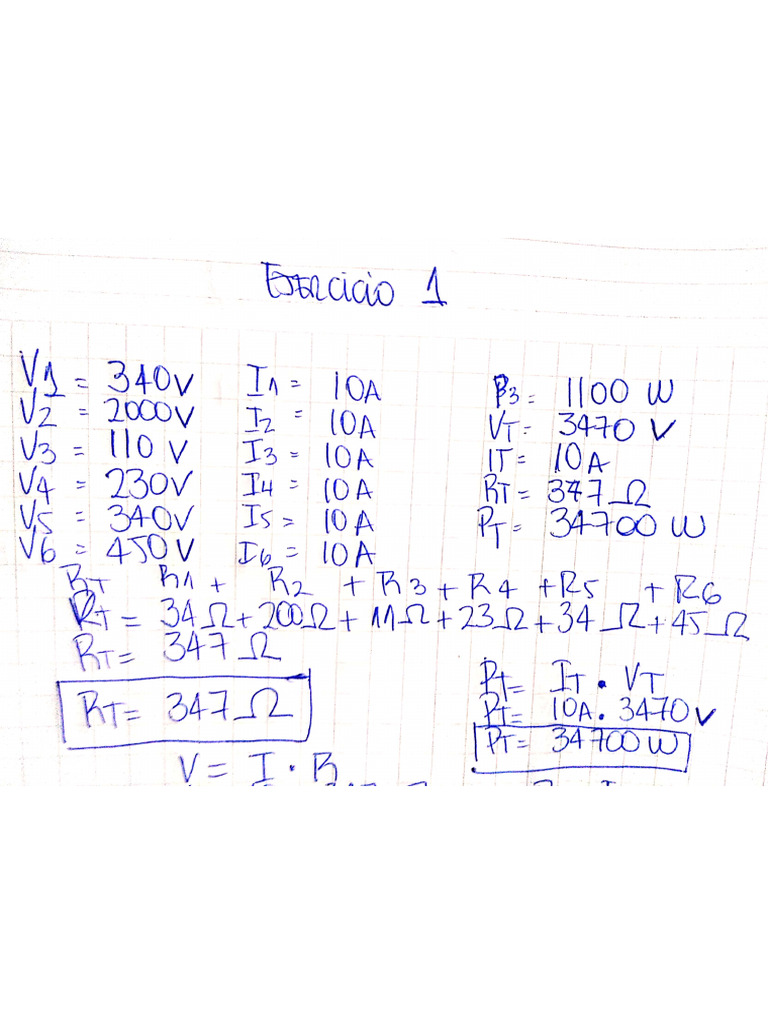 Ejercicio 1
V1 = 340V I1 = 10A P3 = 1100 W
V2 = 2000V I2 = 10A VT = 3470 V
V3 = 110 V I3 = 10A IT = 10A
V4 = 230V I4 = 10A RT = 347 Ω
V5 = 340V I5 = 10A PT = 34700 W
V6 = 450V I6 = 10A
RT R1 + R2 + R3 + R4 + R5 + R6
RT = 34Ω + 200Ω + 11Ω + 23Ω + 34Ω + 45Ω
RT = 347 Ω
RT = 347 Ω
PT = IT • VT
PT = 10A. 3470V
PT = 34700 W
V = I • R